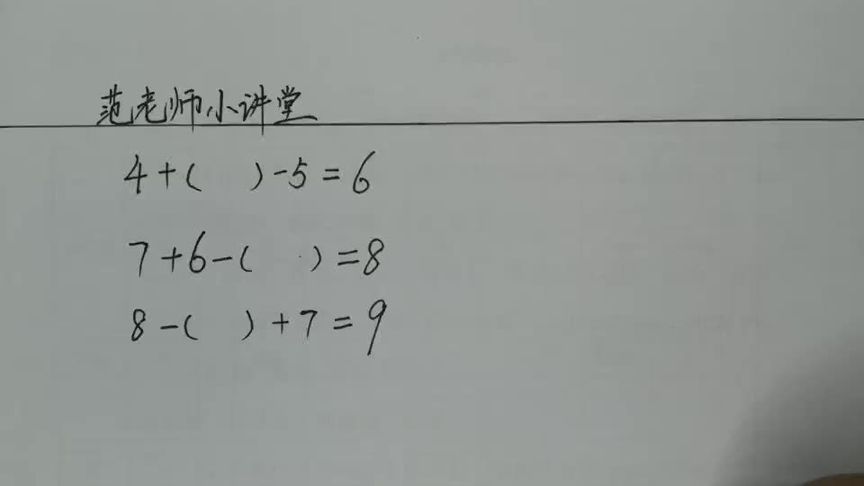 范老师小讲堂
4+( )-5=6
7+6-( )=8
8-( )+7=9